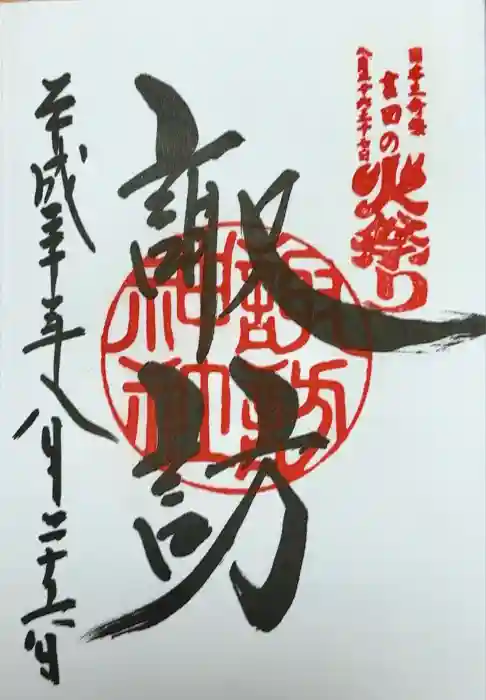 日本三奇祭
吉田の
火祭り
八月二十六二十七日
諏訪
諏訪
神社
平成三十年八月二十六日